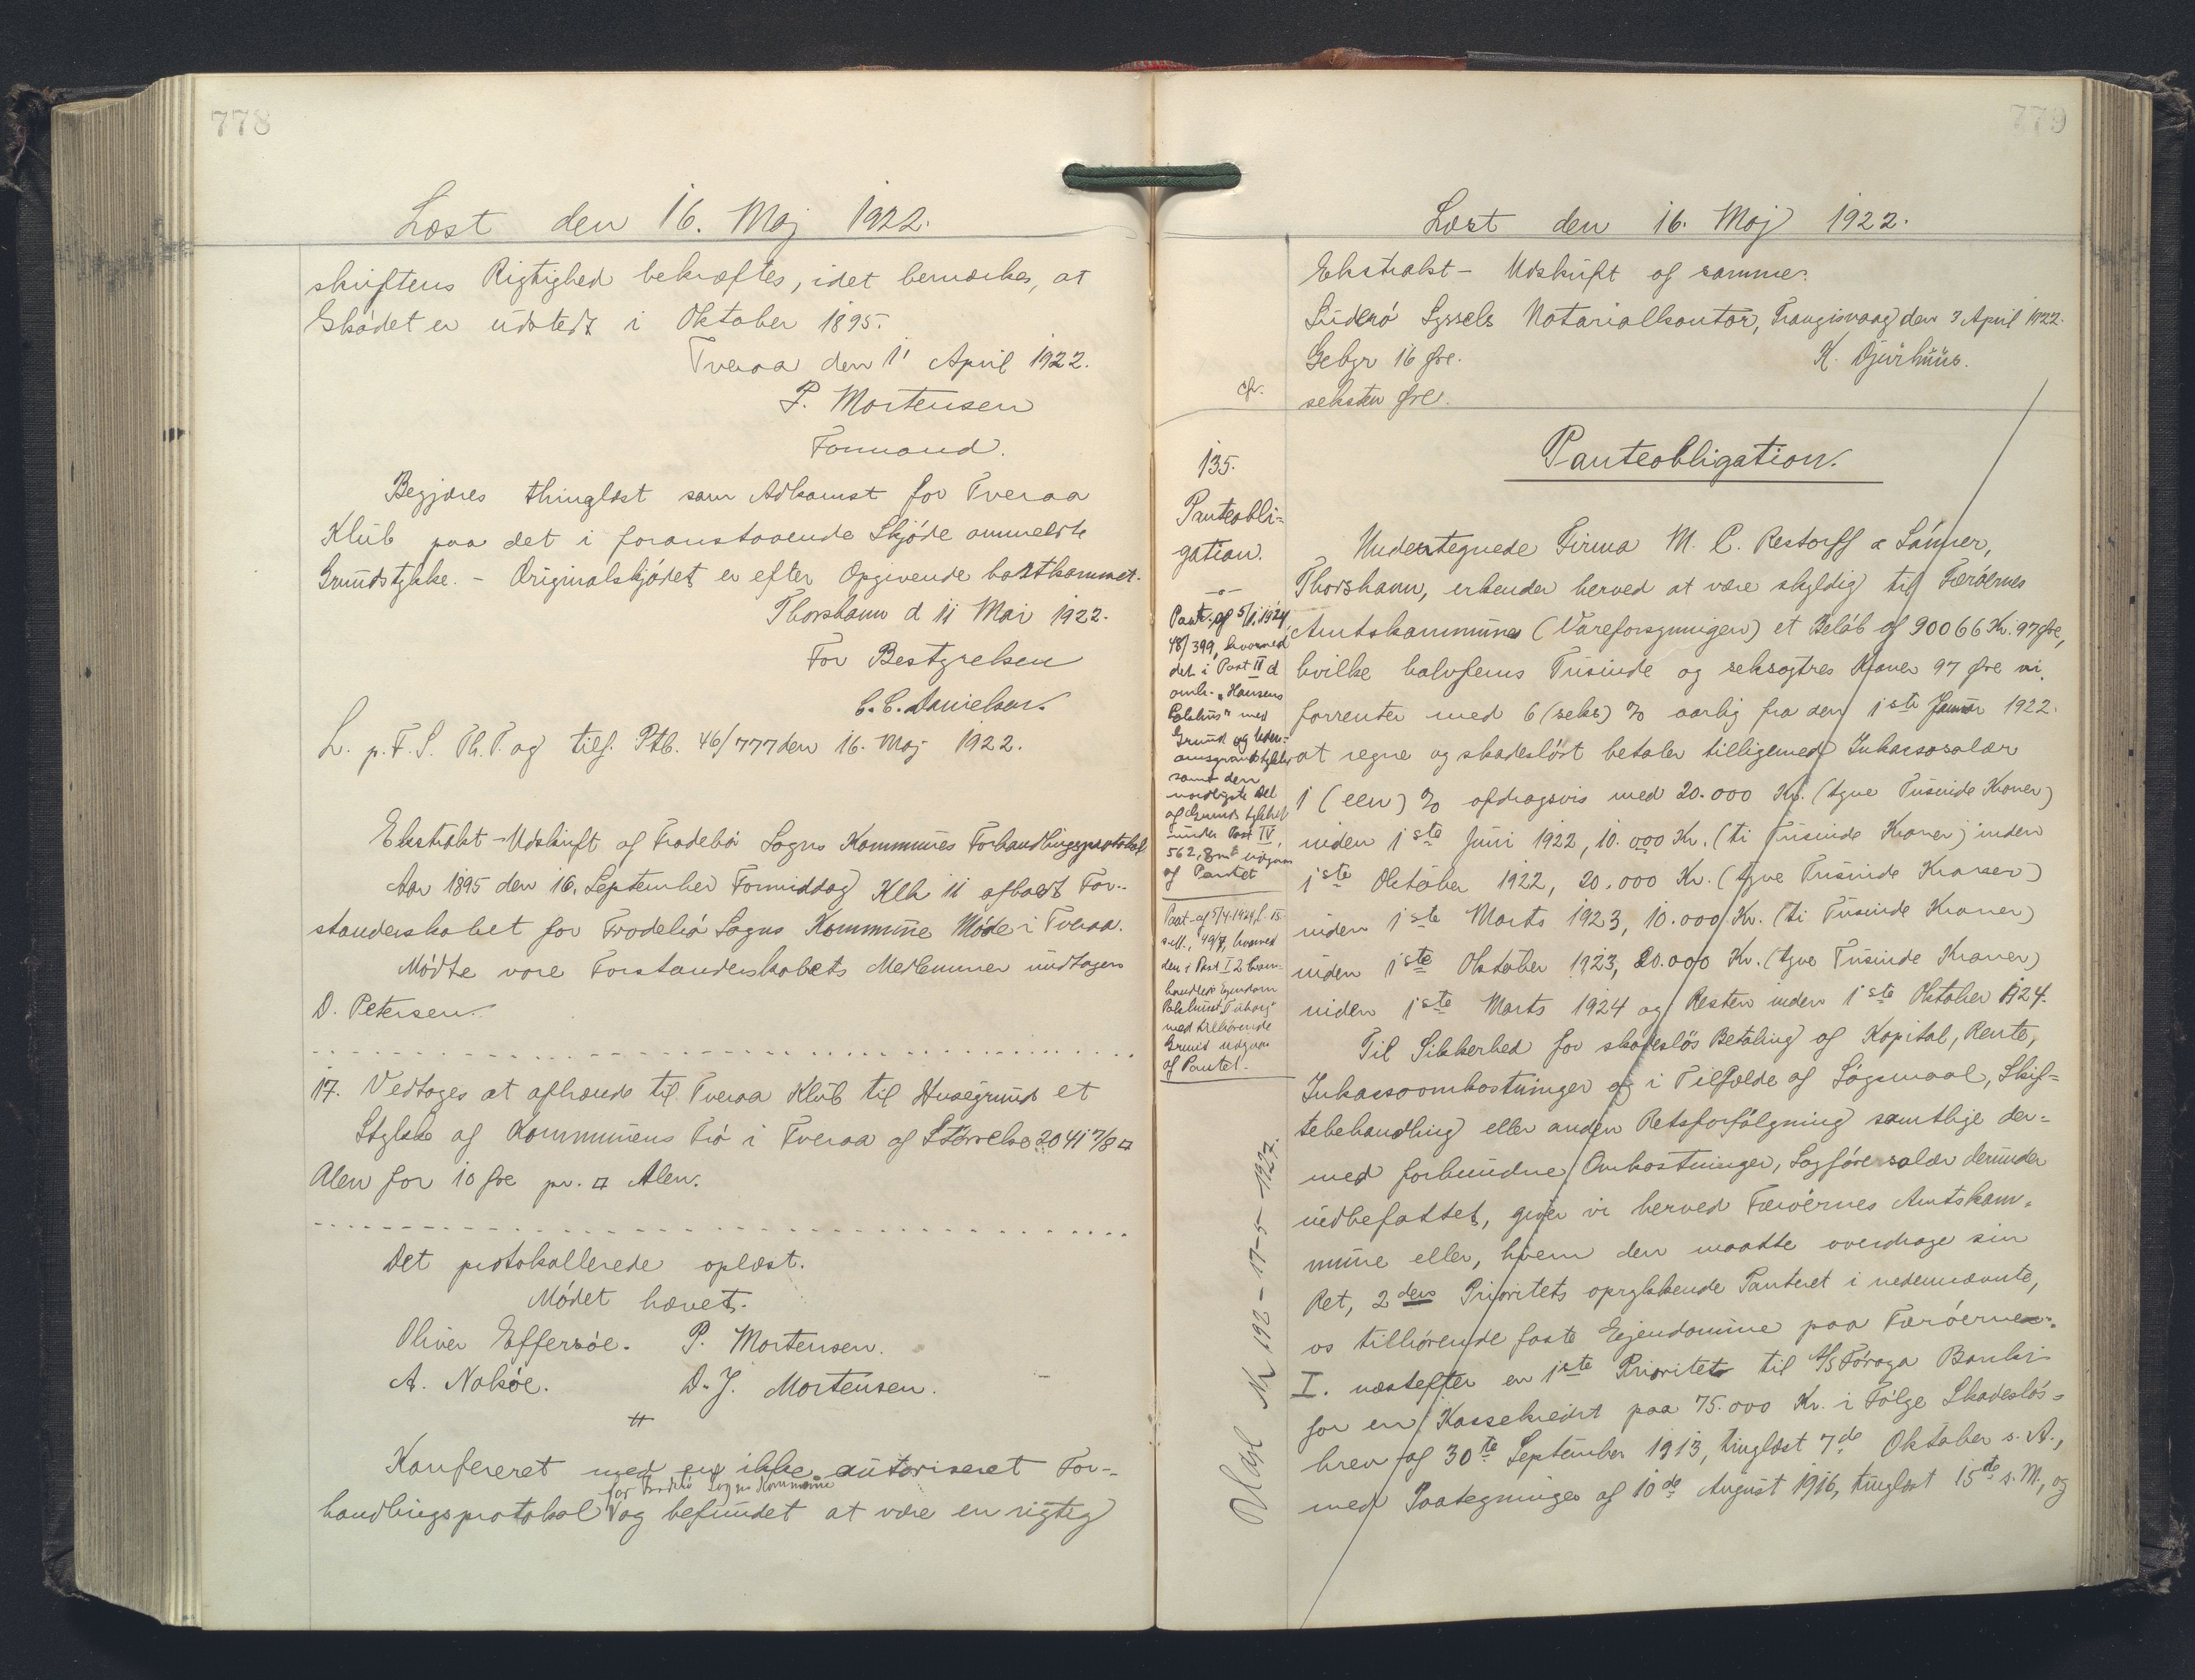 778
Læst den 16. Maj 1922.
skriftens Rigtighed bekræftes, idet bemærkes, at
Skødet er udstedt i Oktober 1895.
Tveraa den 1' April 1922.
P. Mortensen
Formand.
Begjæres thinglæst som Adkomst for Tveraa
Klub paa det i foranstaaende Skjøde ommeldte
Grundstykke. - Originalskjødet er efter Opgivende bortkommet.
Thorshavn d 11 Mai 1922.
For Bestyrelsen
C. C. Danielsen.
L. p. F. S. Th. P. og tilf. Ptb. 46/777 den 16. Maj 1922.
Ekstrakt-Udskrift af Frodebø Sogns Kommunes Forhandlingsprotokol
Aar 1895 den 16. September Formiddag Klk 11 afholdt For-
standerskabet for Frodebø Sogns Kommune Møde i Tveraa.
Mødte vare Forstanderskabets Medlemmer undtagen
D. Petersen.
17. Vedtages at afhænde til Tveraa Klub til Husegrund et
Stykke af Kommunens Trø i Tveraa af Størrelse 2041 7/8 □
Alen for 10 Øre pr. □ Alen.
Det protokollerede oplæst.
Mødet hævet.
Oliver Effersøe. P. Mortensen.
A. Nolsøe. D. J. Mortensen.
#
Konfereret med en ikke autoriseret For-
for Frodebø Sogns Kommune
handlingsprotokol V og befundet at være en rigtig
779
Læst den 16. Maj 1922.
Ekstrakt-Udskrift af samme.
Suderø Syssels Notarialkontor, Trangisvaag den 3 April 1922.
Gebyr 16 Øre. K. Djurhuus.
cfr. seksten Øre.
135.
Panteobli=
gation.
-o-
Pant. af 5/1. 1924,
48/399, hvorved
det i Post II d
omh. "Hansens
Pakhus" med
Grund og
samt den
nordligste Del
af Grundstykket
under Post IV,
562,8 m² udgaar
af Pantet
Paat. af 5/4. 1924, l. 15
49/7, hvorved
den i Post I 2 om-
handlede Ejendom
Pakhuset
med tilhørende
Grund udgaar
af Pantet.
Udsl Nr 192 - 17-5-1927.
Panteobligation.
Undertegnede Firma M. C. Restorff & Sønner,
Thorshavn, erkender herved at være skyldig til Færøernes
Amtskommune (Vareforsyningen) et Beløb af 90066 Kr. 97 Øre,
hvilke halvfems Tusinde og seksogtres Kroner 97 Øre vi
forrenter med 6 (seks) % aarlig fra den 1ste Januar 1922.
at regne og skadesløst betaler tilligemed Inkassosalær
1 (een) % afdragsvis med 20.000 Kr. (tyve Tusinde Kroner)
inden 1ste Juni 1922, 10.000 Kr. (ti Tusinde Kroner) inden
1ste Oktober 1922, 20.000 Kr. (tyve Tusinde Kroner)
inden 1ste Marts 1923, 10.000 Kr. (ti Tusinde Kroner)
inden 1ste Oktober 1923, 20.000 Kr. (tyve Tusinde Kroner)
inden 1ste Marts 1924 og Resten inden 1ste Oktober 1924.
Til Sikkerhed for skadesløs Betaling af Kapital, Rente,
Inkassoomkostninger og i Tilfælde af Søgsmaal, Skif=
tebehandling eller anden Retsforfølgning samtlige der=
med forbundne Omkostninger, Sagføresalær derunder
indbefattet, giver vi herved Færøernes Amtskom=
mune eller, hvem den maatte overdrage sin
Ret, 2den Prioritets oprykkende Panteret i nedennævnte,
os tilhørende faste Ejendomme paa Færøerne:
I. næstefter en 1ste Prioritet til A/S Føroya Banki
for en Kassekredit paa 75.000 Kr. i Følge Skadesløs=
brev af 30te September 1913, tinglæst 7de Oktober s. A.,
med Paategninger af 10de August 1916, tinglæst 15de s. M., og